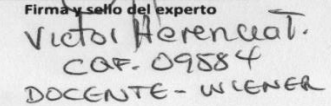 Firma y sello del experto
Victor Herencia T.
CQF. 09584
DOCENTE - WIENER